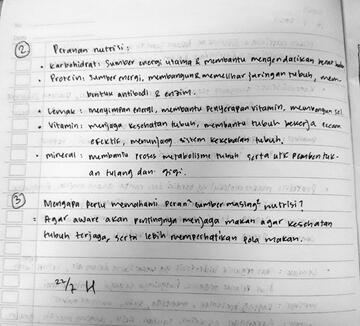 ② Peranan nutrisi :
• Karbohidrat : Sumber energi utama & membantu mengendalikan berat badan
• Protein : Sumber energi, membangun & memelihar jaringan tubuh, mem-
bentuk antibodi & enzim.
• Lemak : menyimpan energi, membantu penyerapan vitamin, membangun sel.
• Vitamin : menjaga kesehatan tubuh, membantu tubuh bekerja secara
efektif, menunjang sistem kekebalan tubuh.
• mineral : membantu proses metabolisme tubuh serta utk pembentuk-
an tulang dan gigi.
③ Mengapa perlu memahami peran² sumber masing² nutrisi?
= Agar aware akan pentingnya menjaga makan agar kesehatan
tubuh terjaga, serta lebih memperhatikan pola makan.
22/7